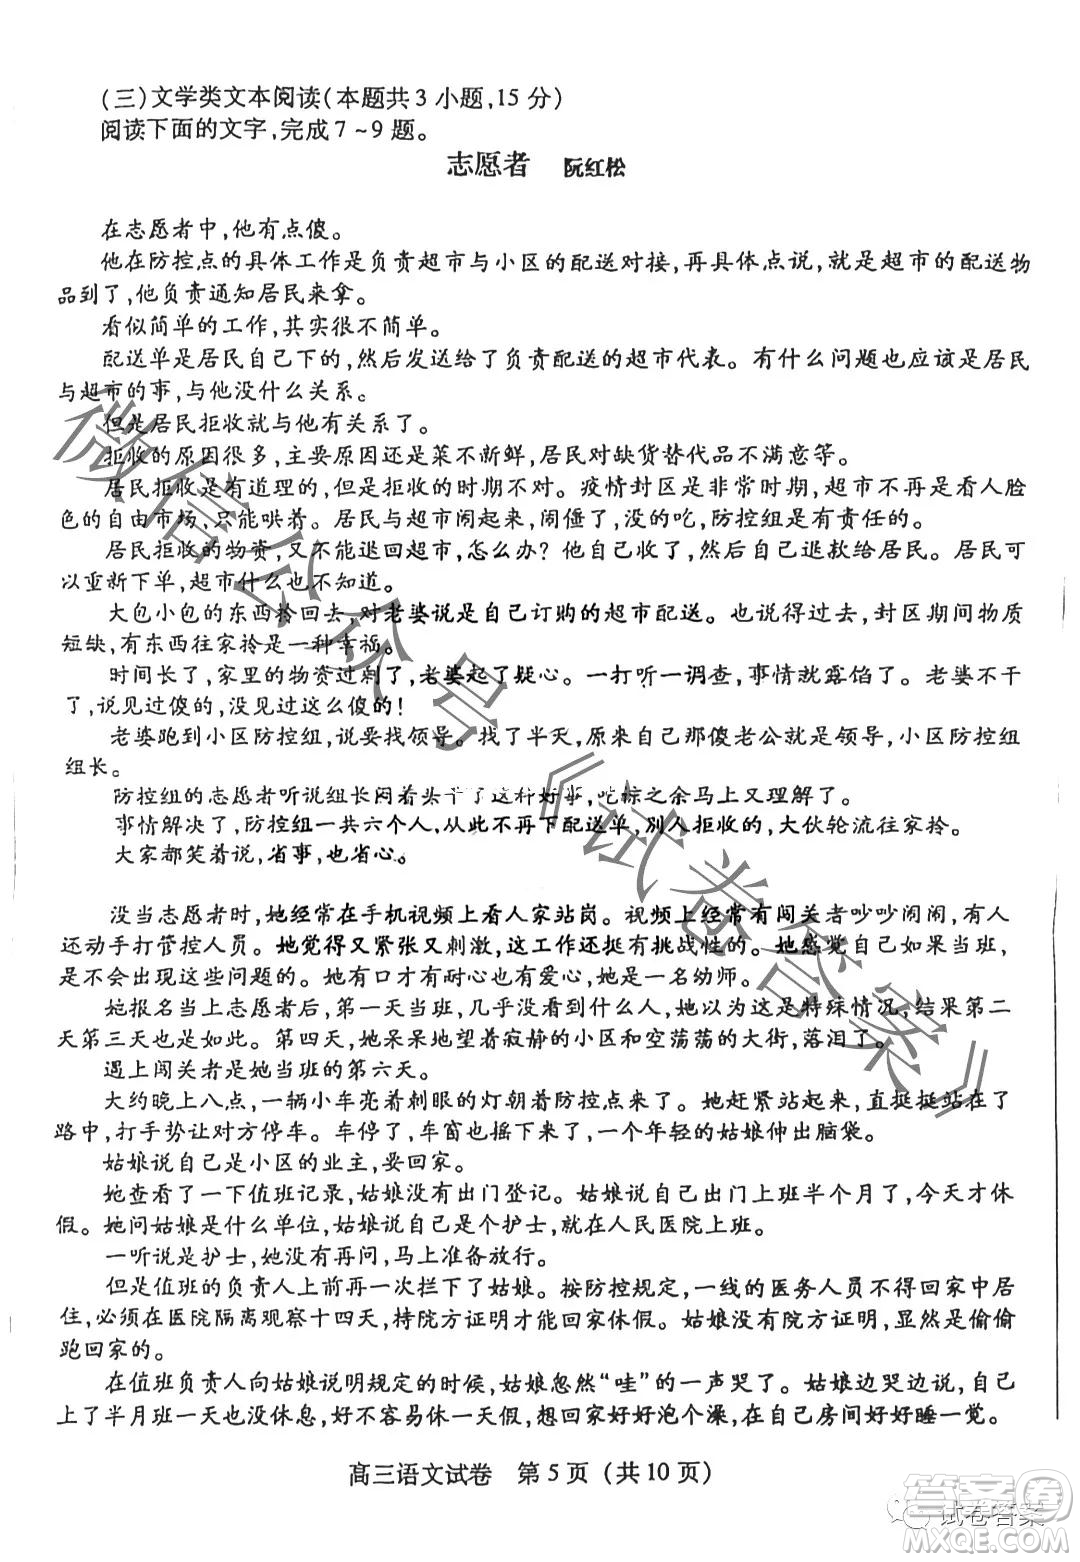 (三)文学类文本阅读(本题共3小题,15分)
阅读下面的文字,完成7~9题。
志愿者 阮红松
在志愿者中,他有点傻。
他在防控点的具体工作是负责超市与小区的配送对接,再具体点说,就是超市的配送物
品到了,他负责通知居民来拿。
看似简单的工作,其实很不简单。
配送单是居民自己下的,然后发送给了负责配送的超市代表。有什么问题也应该是居民
与超市的事,与他没什么关系。
但是居民拒收就与他有关系了。
拒收的原因很多,主要原因还是菜不新鲜,居民对缺货替代品不满意等。
居民拒收是有道理的,但是拒收的时期不对。疫情封区是非常时期,超市不再是看人脸
色的自由市场,只能哄着。居民与超市闹起来,闹僵了,没的吃,防控组是有责任的。
居民拒收的物资,又不能退回超市,怎么办?他自己收了,然后自己退款给居民。居民可
以重新下单,超市什么也不知道。
大包小包的东西拎回去,对老婆说是自己订购的超市配送。也说得过去,封区期间物质
短缺,有东西往家拎是一种幸福。
时间长了,家里的物资过剩了,老婆起了疑心。一打听一调查,事情就露馅了。老婆不干
了,说见过傻的,没见过这么傻的!
老婆跑到小区防控组,说要找领导。找了半天,原来自己那傻老公就是领导,小区防控组
组长。
防控组的志愿者听说组长闷着头干了这种好事,吃惊之余马上又理解了。
事情解决了,防控组一共六个人,从此不再下配送单,别人拒收的,大伙轮流往家拎。
大家都笑着说,省事,也省心。
没当志愿者时,她经常在手机视频上看人家站岗。视频上经常有闯关者吵吵闹闹,有人
还动手打管控人员。她觉得又紧张又刺激,这工作还挺有挑战性的。她感觉自己如果当班,
是不会出现这些问题的。她有口才有耐心也有爱心,她是一名幼师。
她报名当上志愿者后,第一天当班,几乎没看到什么人,她以为这是特殊情况,结果第二
天第三天也是如此。第四天,她呆呆地望着寂静的小区和空荡荡的大街,落泪了。
遇上闯关者是她当班的第六天。
大约晚上八点,一辆小车亮着刺眼的灯朝着防控点来了。她赶紧站起来,直挺挺站在了
路中,打手势让对方停车。车停了,车窗也摇下来了,一个年轻的姑娘伸出脑袋。
姑娘说自己是小区的业主,要回家。
她查看了一下值班记录,姑娘没有出门登记。姑娘说自己出门上班半个月了,今天才休
假。她问姑娘是什么单位,姑娘说自己是个护士,就在人民医院上班。
一听说是护士,她没有再问,马上准备放行。
但是值班的负责人上前再一次拦下了姑娘。按防控规定,一线的医务人员不得回家中居
住,必须在医院隔离观察十四天,持院方证明才能回家休假。姑娘没有院方证明,显然是偷偷
跑回家的。
在值班负责人向姑娘说明规定的时候,姑娘忽然“哇”的一声哭了。姑娘边哭边说,自己
上了半月班一天也没休息,好不容易休一天假,想回家好好泡个澡,在自己房间好好睡一觉。
高三语文试卷 第5页(共10页)
微信公众号《试卷答案》
答案圈
试卷答案
MXQE.COM